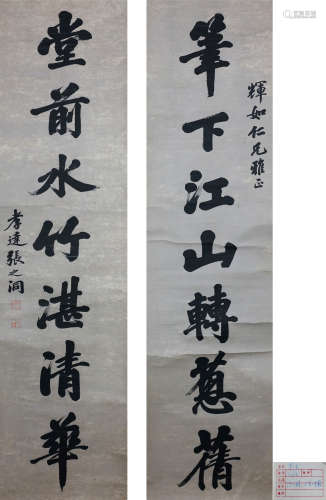 輝如仁兄雅正
筆下江山轉葱蒨
堂前水竹湛清華
孝達張之洞